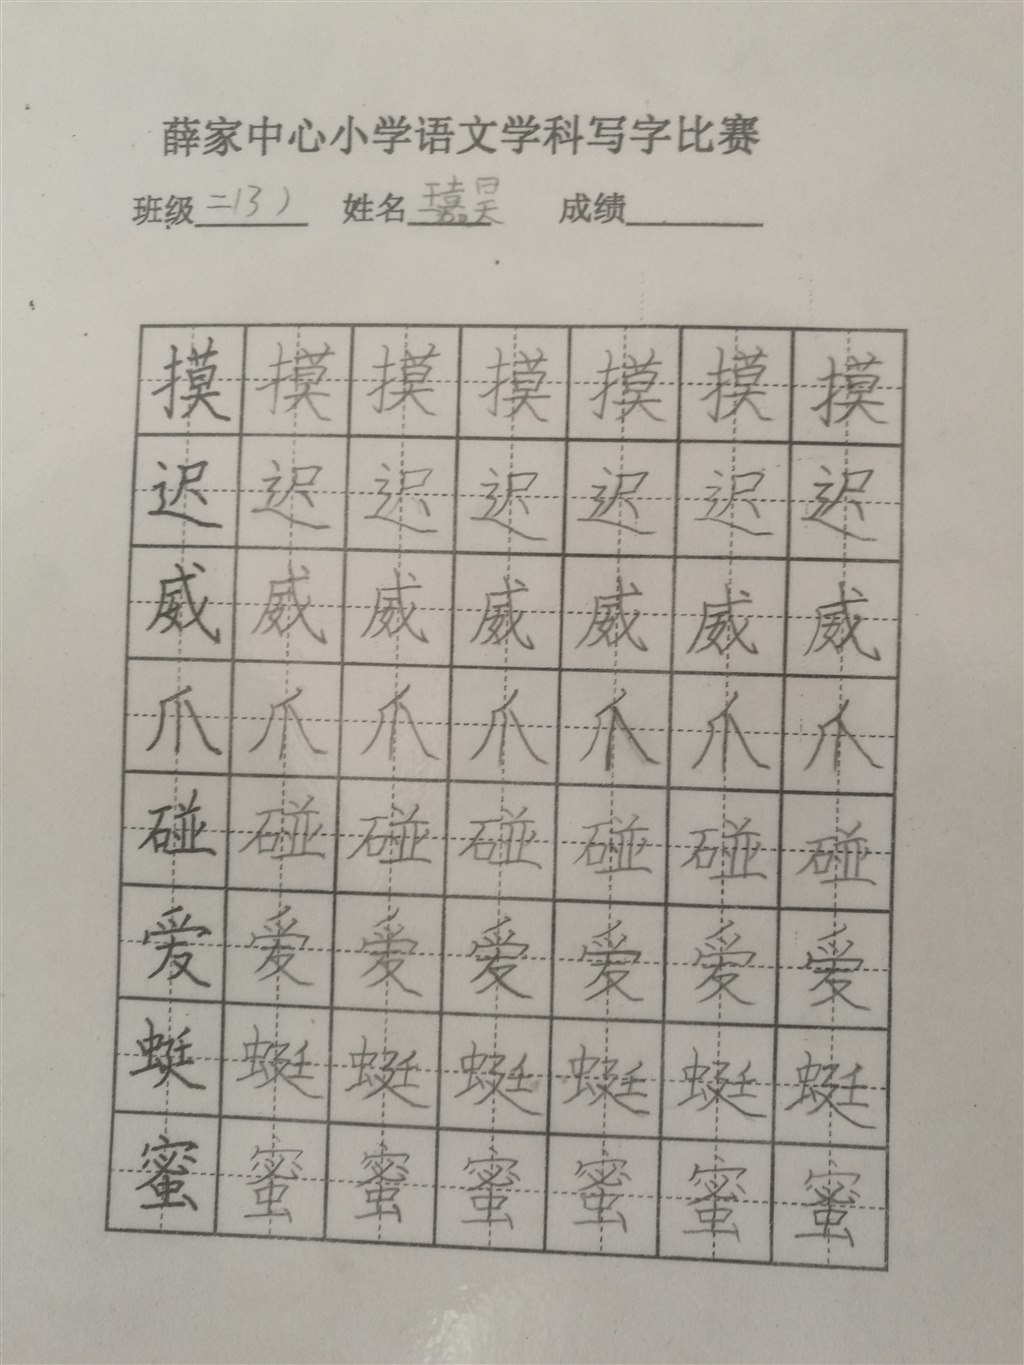 薛家中心小学语文学科写字比赛
班级二(3) 姓名王嘉昊 成绩
摸摸摸摸摸摸摸
迟迟迟迟迟迟迟
威威威威威威威
爪爪爪爪爪爪爪
碰碰碰碰碰碰碰
爱爱爱爱爱爱爱
蜓蜓蜓蜓蜓蜓蜓
蜜蜜蜜蜜蜜蜜蜜